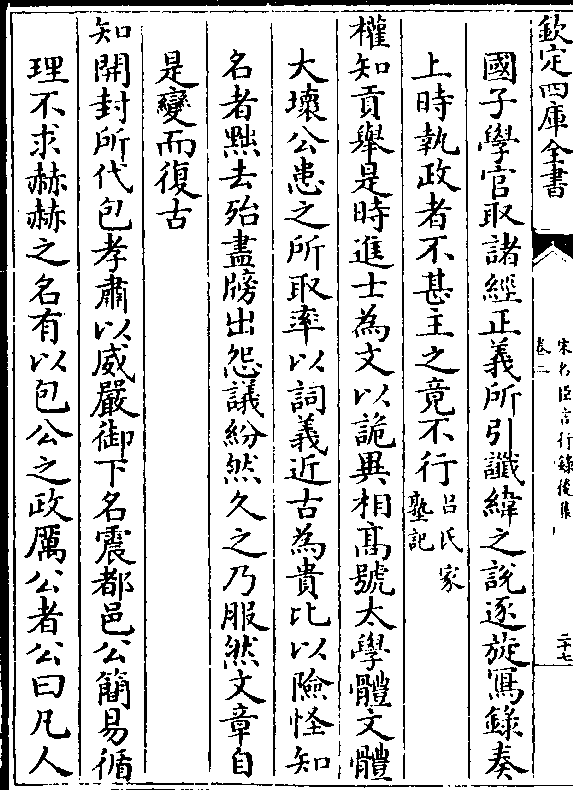 欽定四庫全書
宋名臣言行錄後集
卷二
二十七
國子學官取諸經正義所引讖緯之說逐旋寫錄奏
上時執政者不甚主之竟不行呂氏家塾記
權知貢舉是時進士為文以詭異相髙號太學體文體
大壞公患之所取率以詞義近古為貴比以險怪知
名者黜去殆盡牓出怨議紛然久之乃服然文章自
是變而復古
知開封所代包孝肅以威嚴御下名震都邑公簡易循
理不求赫赫之名有以包公之政厲公者公曰凡人